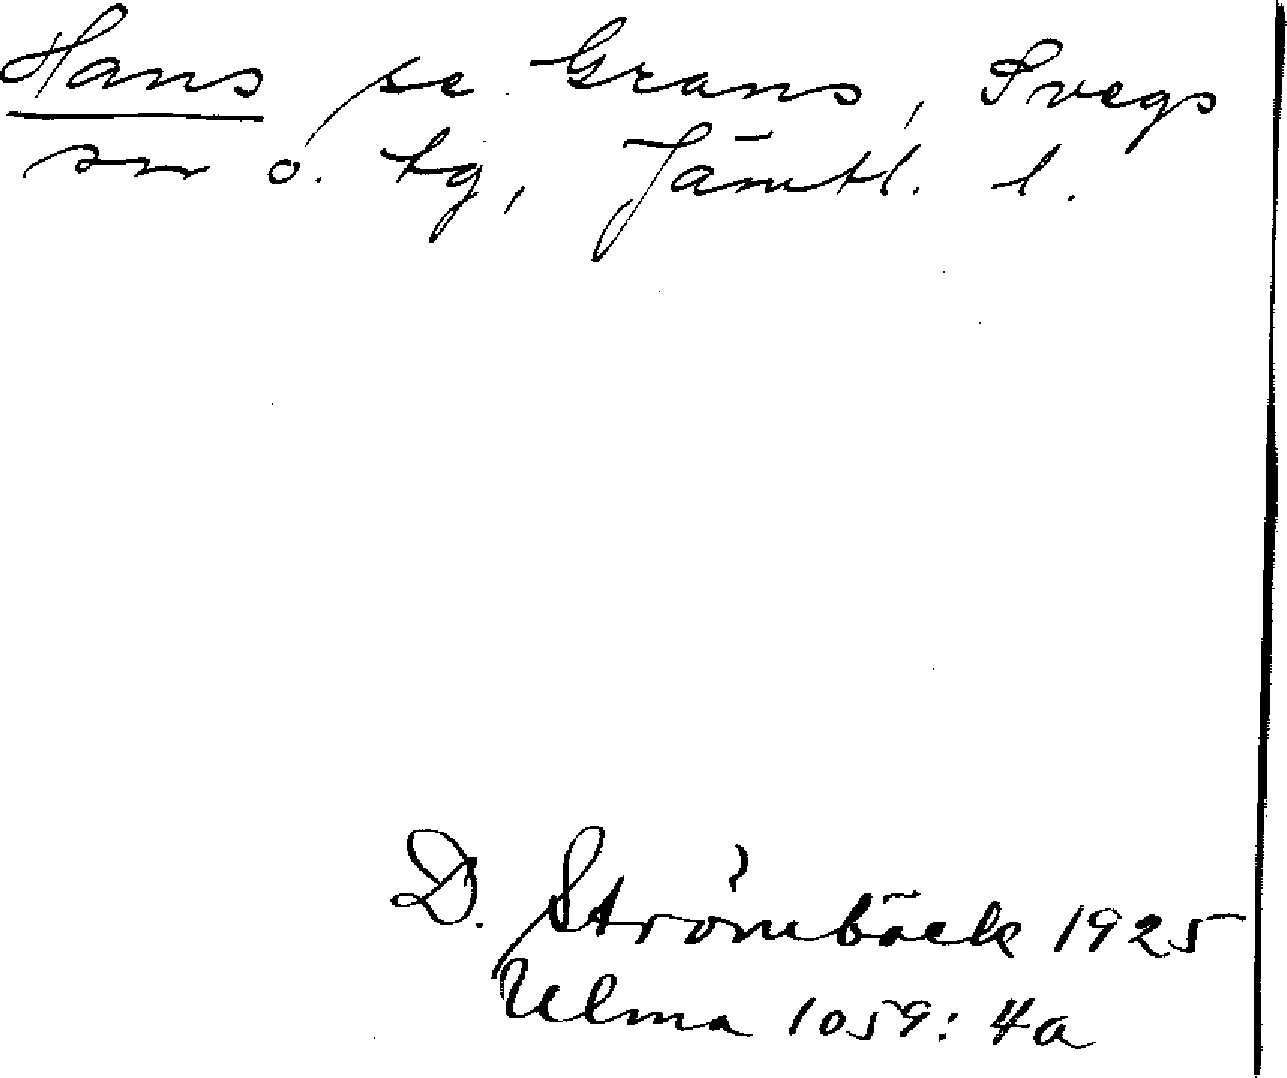 Hans se Grans, Svegs
sn o. tg, Jämtl. l.
D. Strömbäck 1925
Ulma 1059: 4a